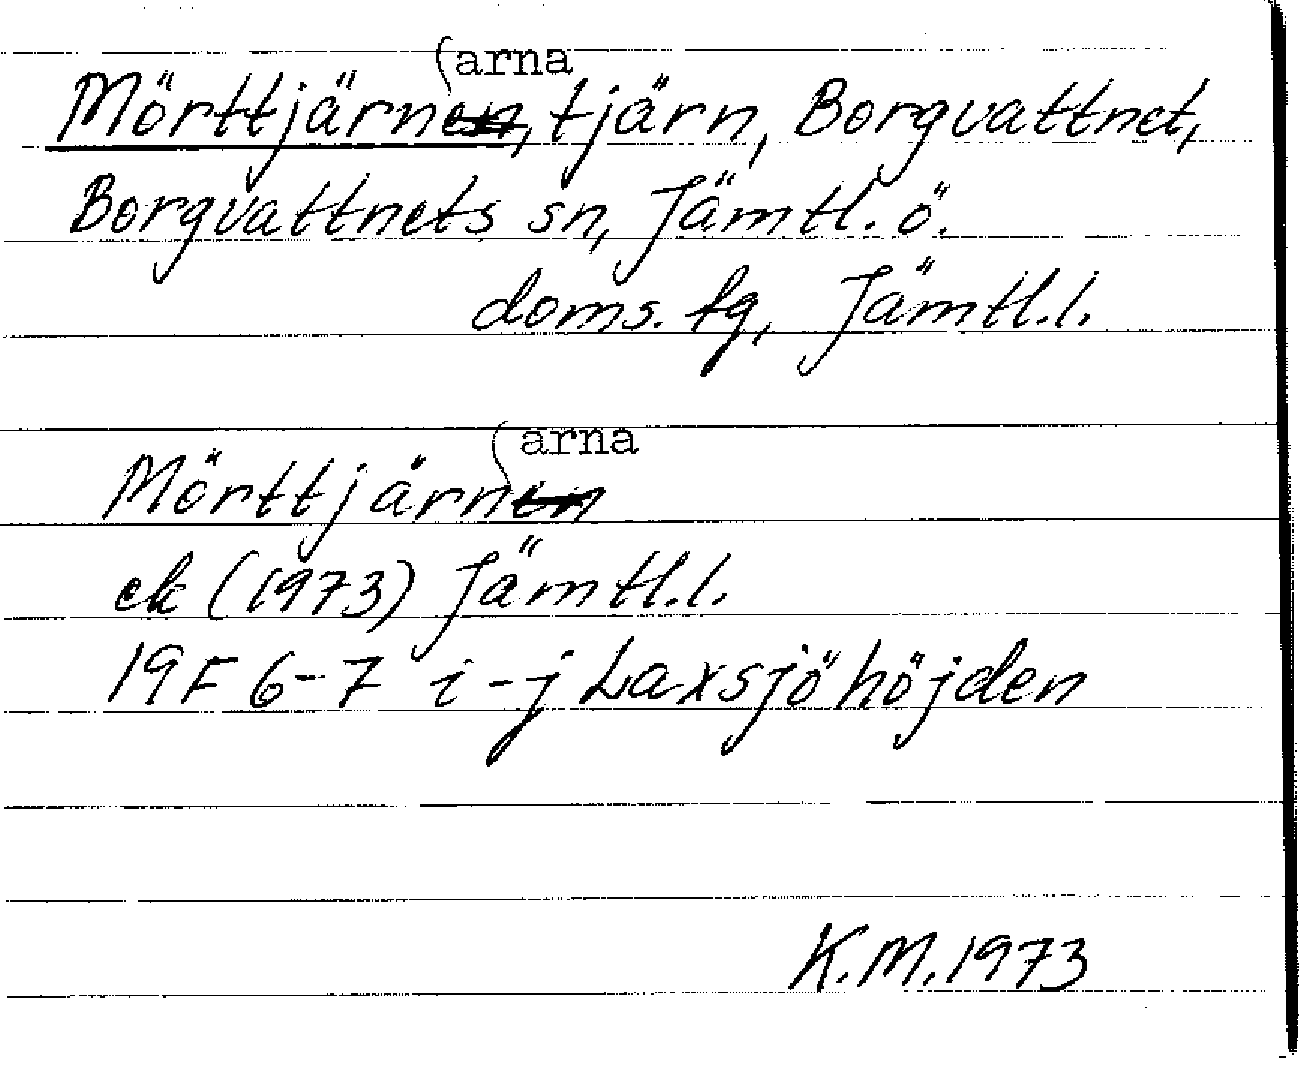 Mörttjärnarna, tjärn, Borgvattnet,
Borgvattnets sn, Jämtl. ö.
doms. fg, Jämtl. l.
Mörttjärnarna
ek (1973) Jämtl. l.
19F 6-7 i-j Laxsjöhöjden
K.M. 1973